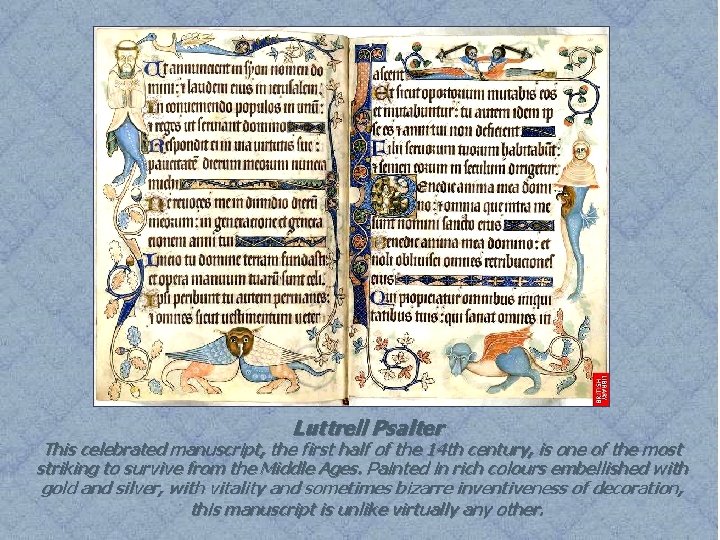 Ut annuncient in syon nomen do
mini: ⁊ laudem eius in ierusalem.
In conueniendo populos in unū:
⁊ reges ut seruiant domino
Respondit ei in uia uirtutis sue:
paucitatē dierum meorum nuncia
michi
Ne reuoces me in dimidio dierū
meorum: in generacione et genera
cionem anni tui
Inicio tu domine terram fundasti:
et opera manuum tuarū sunt celi.
Ipsi peribunt tu autem permanes:
⁊ omnes sicut uestimentum ueter
ascent
Et sicut opertorium mutabis eos
et mutabuntur: tu autem idem ip
se es ⁊ anni tui non deficient
Filii seruorum tuorum habitabūt:
⁊ semen eorum in seculum dirigetur.
Benedic anima mea domi
no: ⁊ omnia que intra me
sunt nomini sancto eius
Benedic anima mea domino: et
noli obliuisci omnes retribuciones
eius
Qui propiciatur omnibus iniqui
tatibus tuis: qui sanat omnes in
BRITISH
LIBRARY
Luttrell Psalter
This celebrated manuscript, the first half of the 14th century, is one of the most
striking to survive from the Middle Ages. Painted in rich colours embellished with
gold and silver, with vitality and sometimes bizarre inventiveness of decoration,
this manuscript is unlike virtually any other.